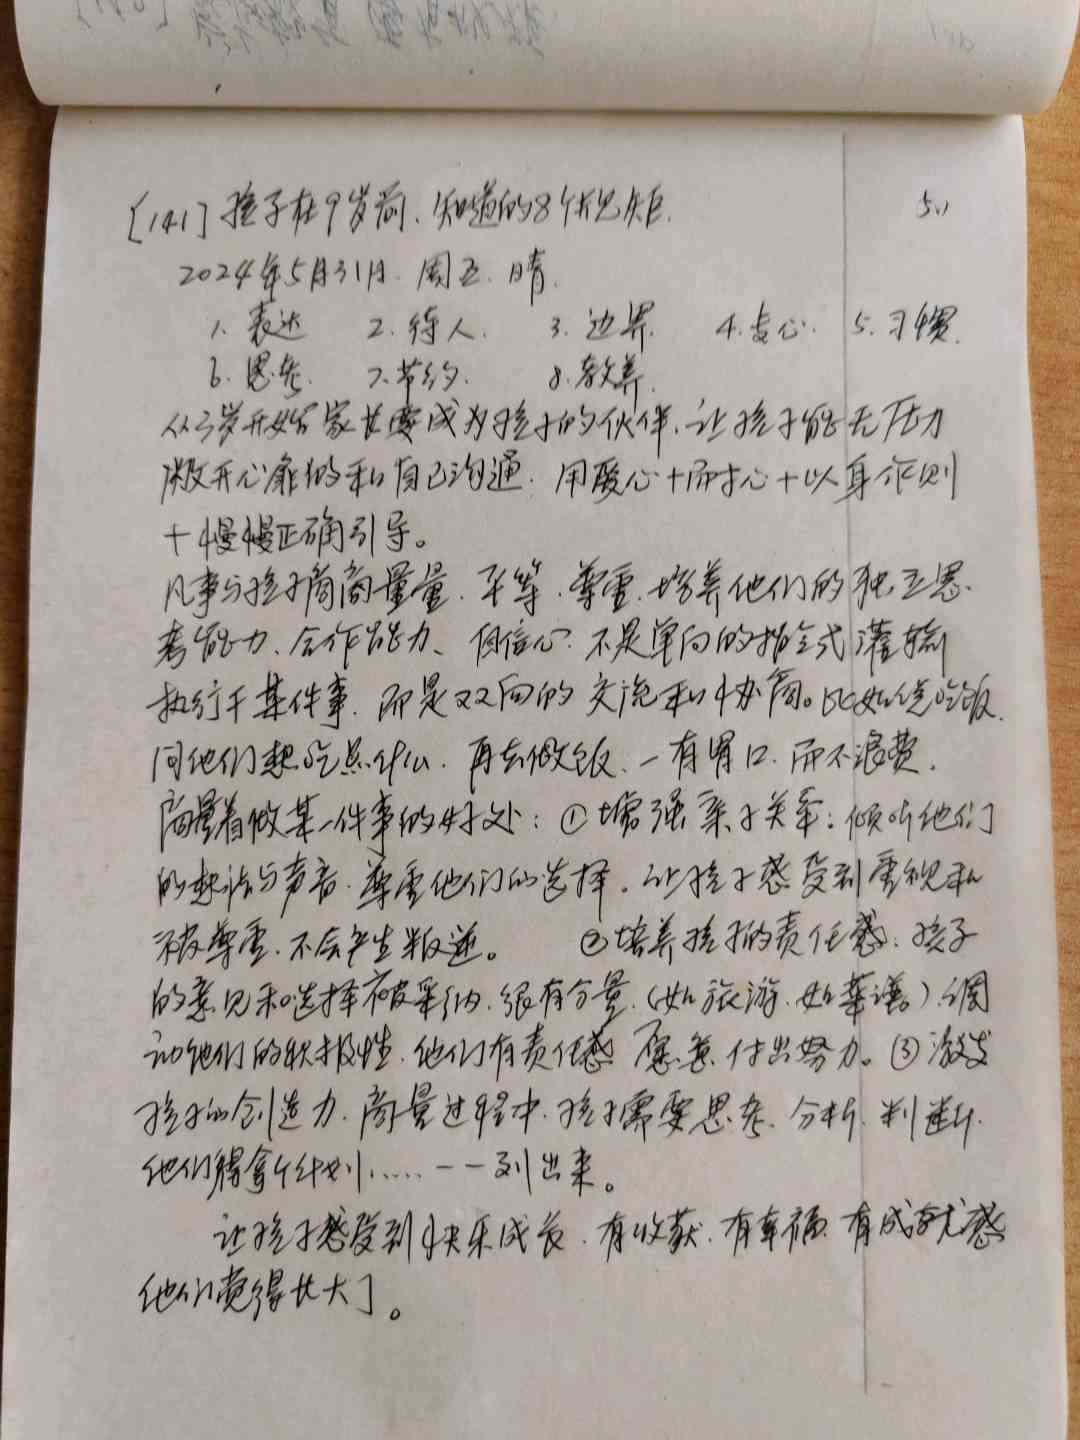 [141] 孩子在9岁前、知道的8个规矩. 5.1
2024年5月31日. 周五. 晴.
1. 表达 2. 待人. 3. 边界. 4. 专心. 5. 习惯.
6. 思考. 7. 节约. 8. 教养.
从3岁开始家长要成为孩子的伙伴、让孩子能无压力
敞开心扉的和自己沟通. 用暖心+耐心+以身作则
+慢慢正确引导。
凡事与孩子商商量量、平等、尊重、培养他们的独立思
考能力、合作能力、自信心. 不是单向的指令式灌输
执行干某件事、而是双向的交流和协商。比如先吃饭、
问他们想吃点什么、再去做饭、一有胃口、而不浪费.
商量着做某一件事的好处: ①增强亲子关系: 倾听他们
的想法与声音、尊重他们的选择、让孩子感受到重视和
被尊重、不会产生叛逆。 ②培养孩子的责任感: 孩子
的意见和选择被采纳、很有分量、(如旅游、如菜谱) 调
动他们的积极性、他们有责任感 愿意付出努力。③激发
孩子的创造力、商量过程中、孩子需要思考、分析、判断、
他们得拿个计划……一一列出来。
让孩子感受到快乐成长、有收获、有幸福 有成就感
他们觉得长大了。